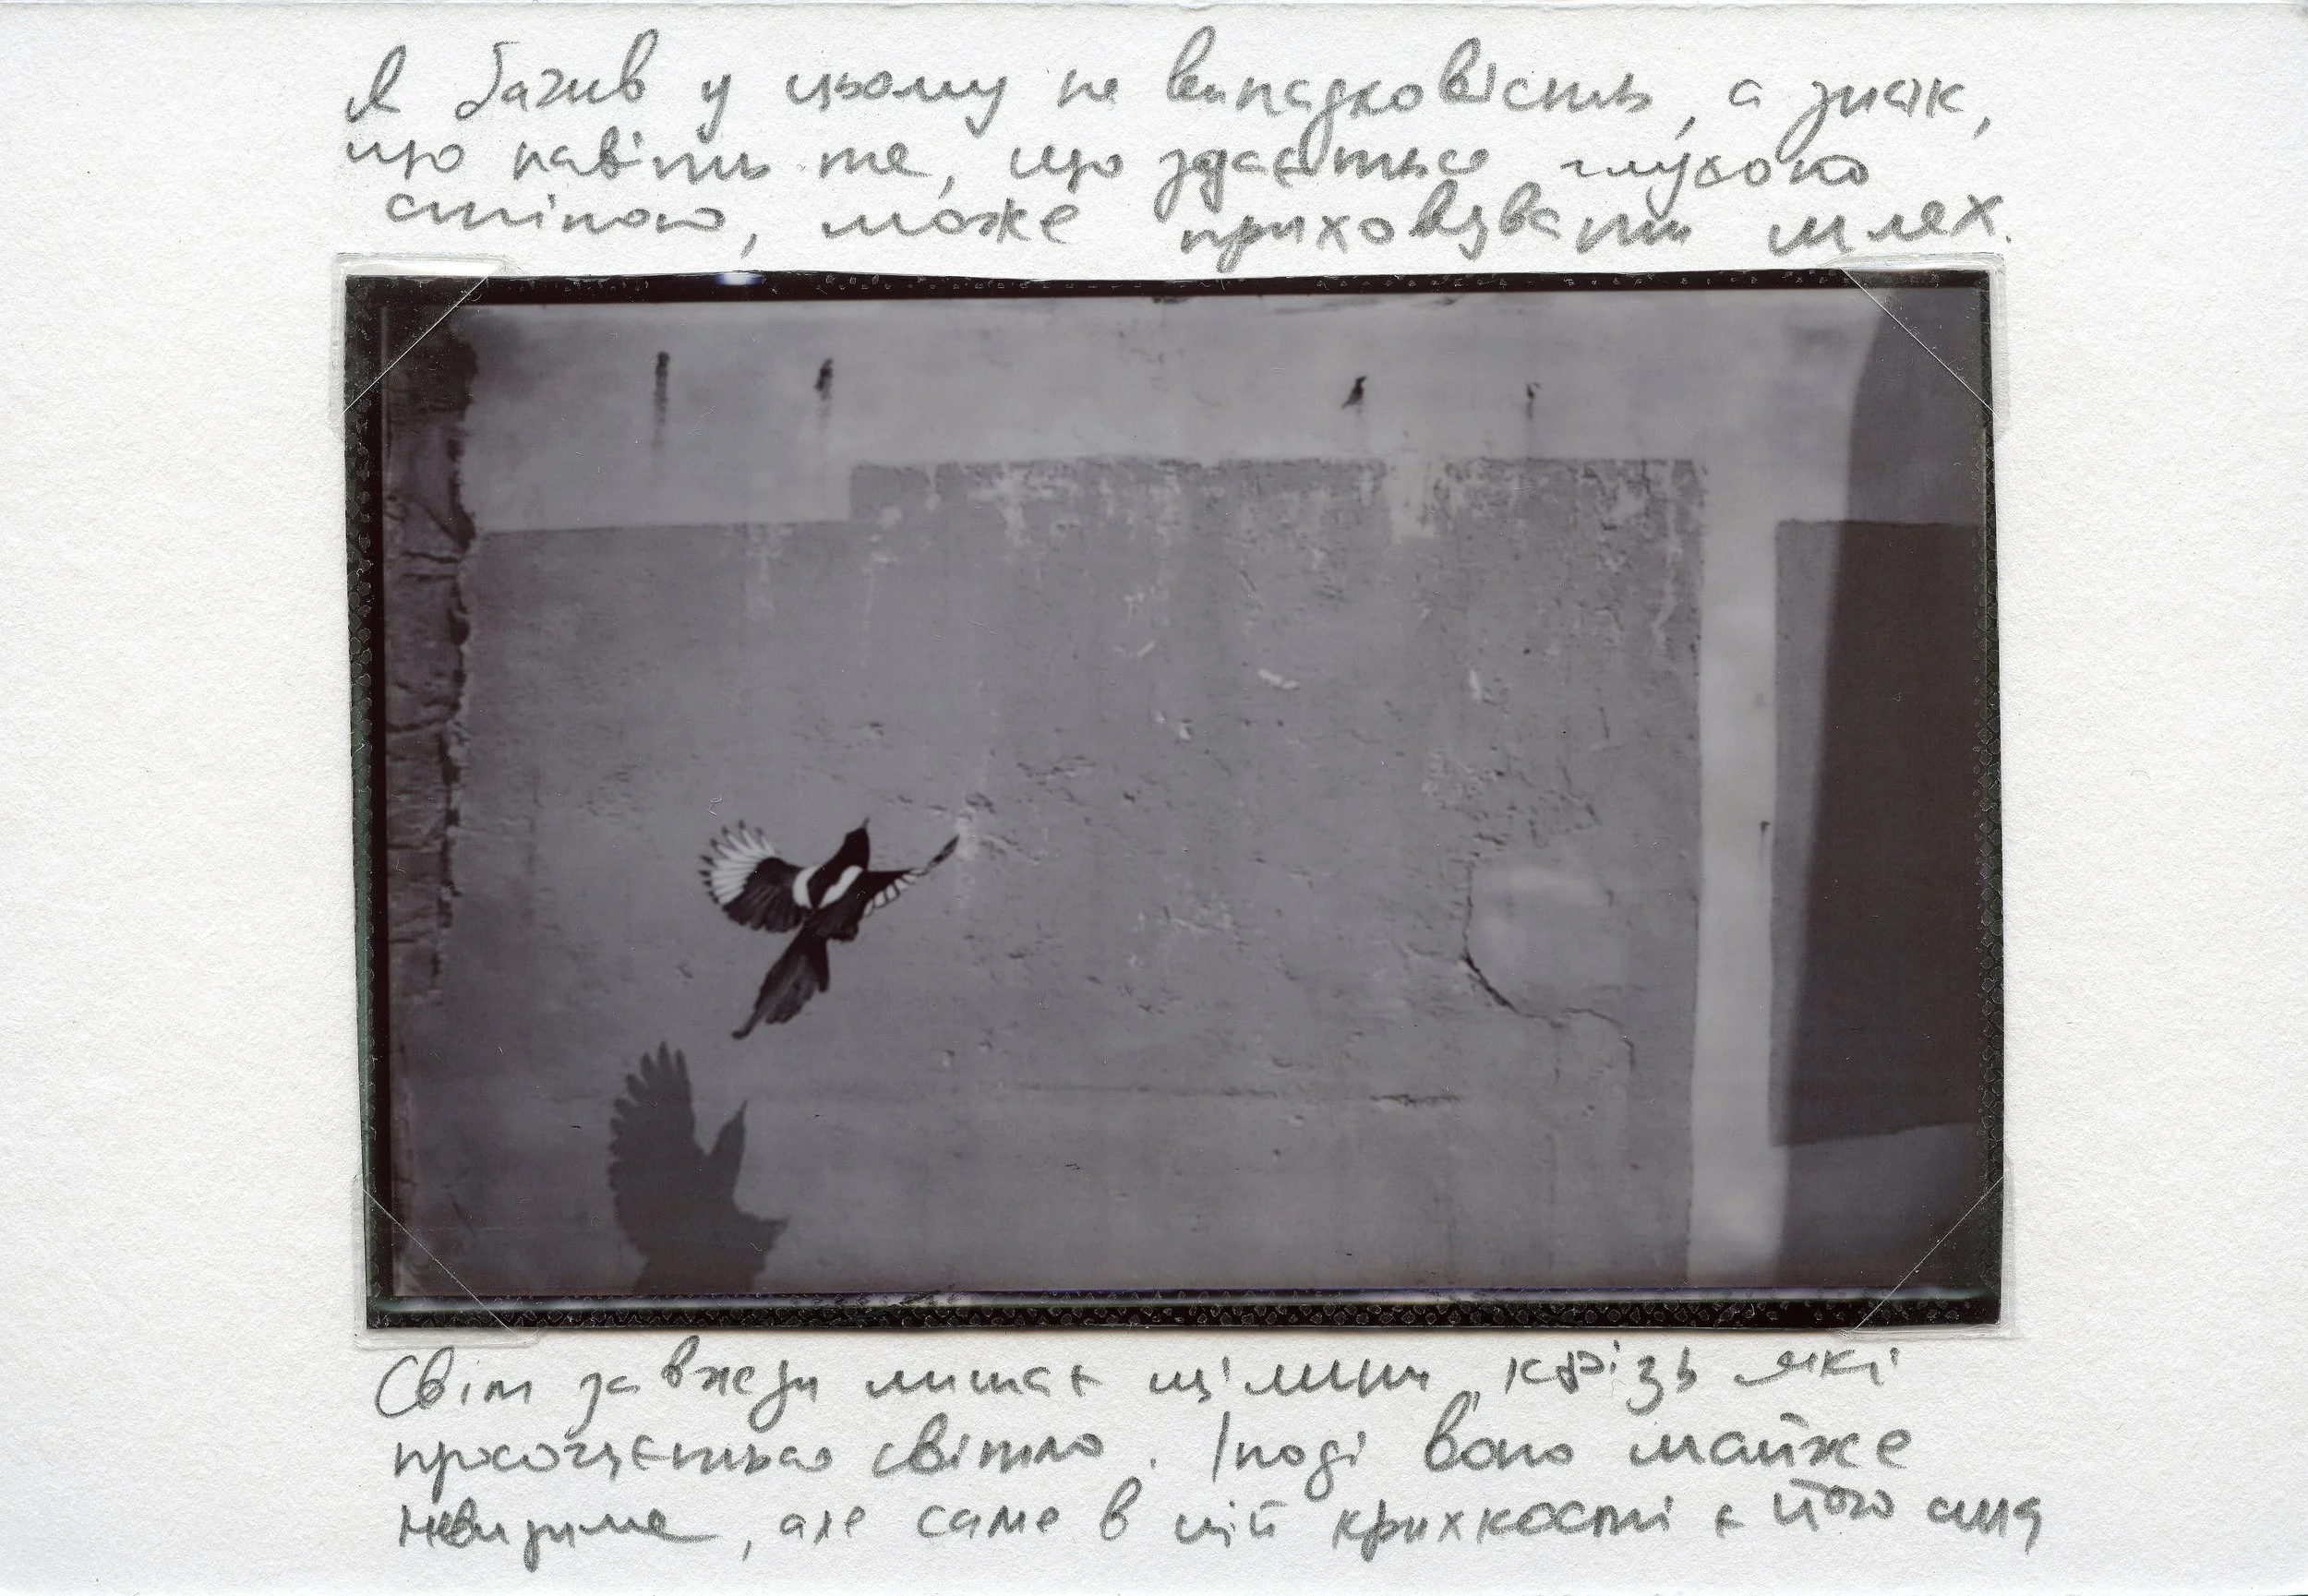 Я бачив у цьому не випадковість, а знак,
що навіть те, що здається глухою
стіною, може приховувати шлях.
Світ завжди лишає щілини, крізь які
просочується світло. Іноді воно майже
невидиме, але саме в цій крихкості є його сила